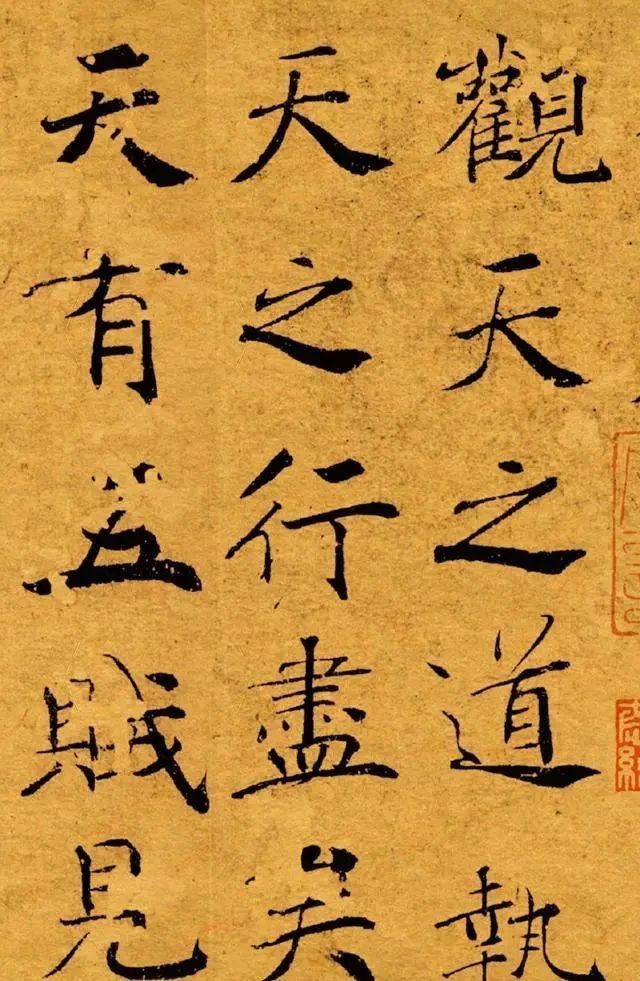 觀天之道執
天之行盡矣
天有五賊見